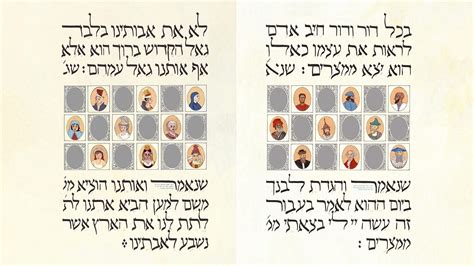 בכל דור ודור חיב אדם
לראות את עצמו כאלו
הוא יצא ממצרים: שנא
שנאמר והגדת לבנך
ביום ההוא לאמר בעבור
זה עשה יי לי בצאתי ממ
ממצרים:
לא את אבותינו בלבד
גאל הקדוש ברוך הוא אלא
אף אותנו גאל עמהם: שנ
שנאמר ואותנו הוציא מש
משם למען הביא אתנו ל
לתת לנו את הארץ אשר
נשבע לאבתינו: